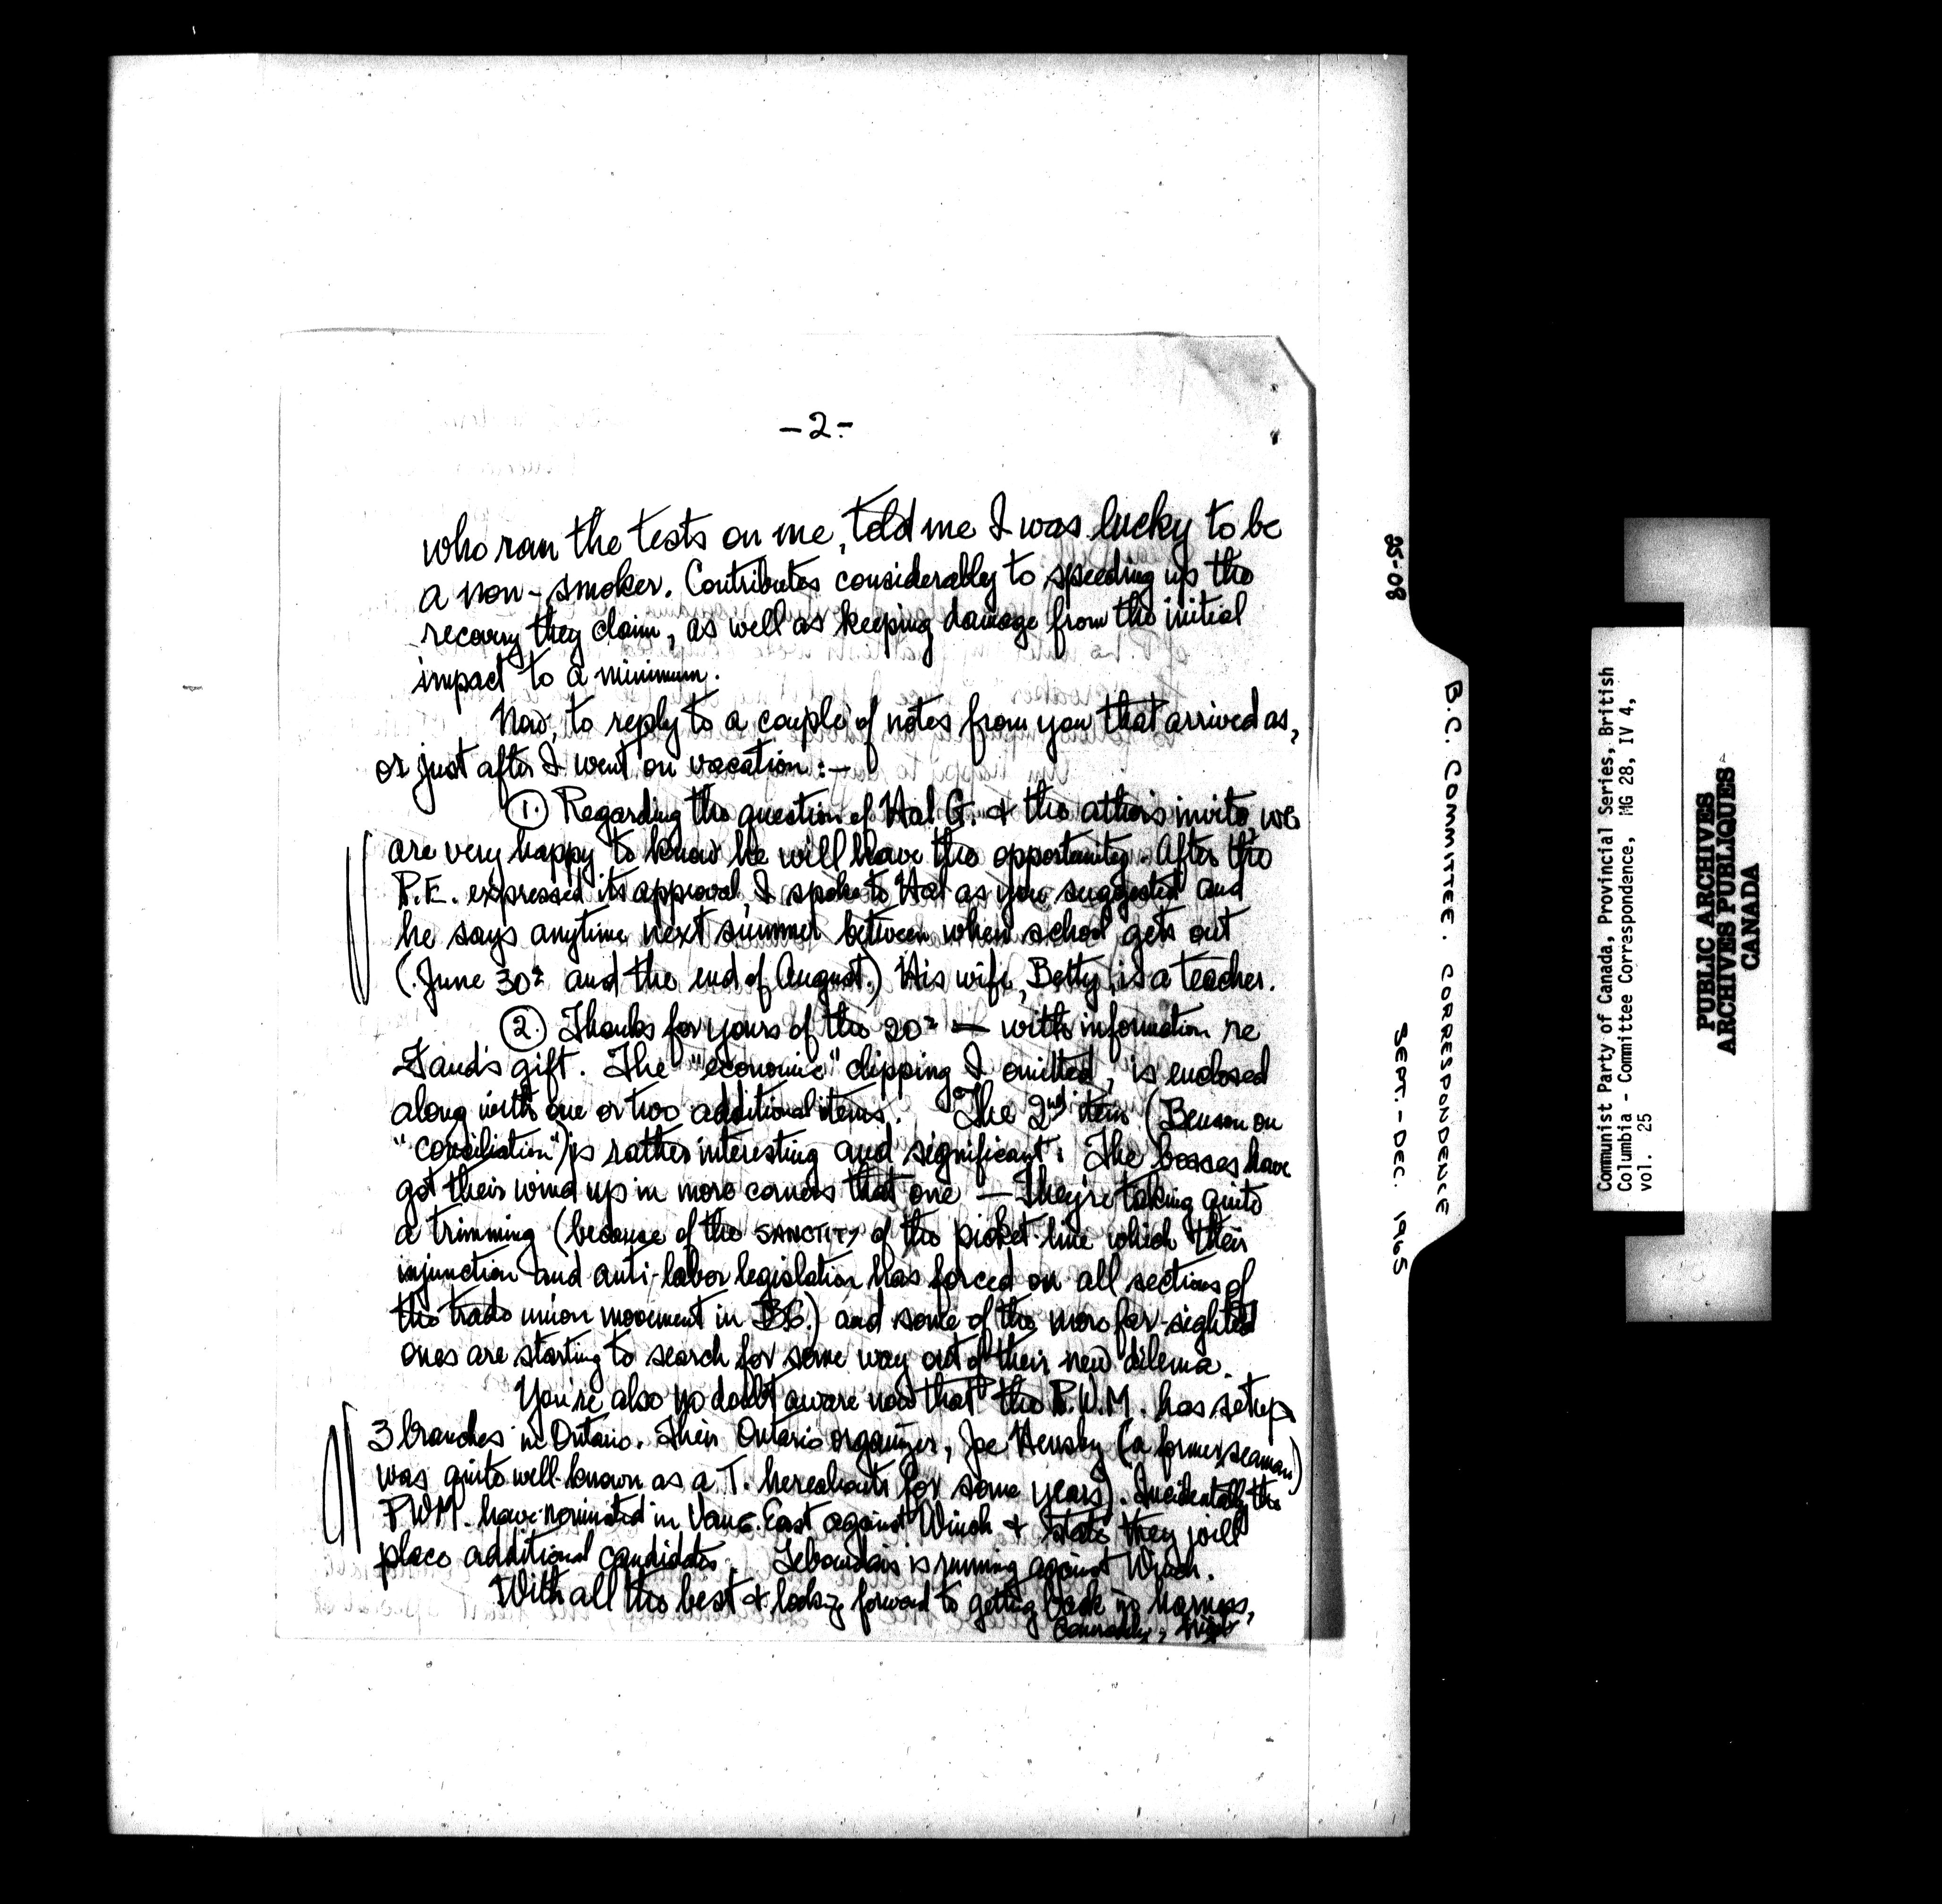 -2-
who ran the tests on me, told me I was lucky to be
a non-smoker. Contributes considerably to speeding up the
recovery they claim, as well as keeping damage from the initial
impact to a minimum.
Now, to reply to a couple of notes from you that arrived as,
or just after I went on vacation :—
① Regarding the question of Hal G. & the other's invite, we
are very happy to know he will have the opportunity. After the
P.E. expressed its approval, I spoke to Hal as you suggested and
he says anytime next summer between when school gets out
(June 30th and the end of August.) His wife, Betty, is a teacher.
② Thanks for yours of the 20th — with information re
gift. The "economic" clipping I omitted, is enclosed
along with one or two additional items. The 2nd item (Benson on
"conciliation") is rather interesting and significant. The bosses have
got their wind up in more corners that one — They're taking quite
a trimming (because of the SANCTITY of the picket-line which their
injunction and anti-labor legislation has forced on all sections of
the trade union movement in BC.) and some of the more far-sighted
ones are starting to search for some way out of their new dilema.
You're also no doubt aware now that the P.W.M. has set up
3 branches in Ontario. Their Ontario organizer, Joe Hendsby (a former seaman)
was quite well-known as a T. hereabouts for some years). Incidentally the
PWM. have nominated in Vanc. East against Winch & state they will
place additional candidates. Lebourdais is running against Winch.
With all the best & looking forward to getting back in harness,
Comradely,
25-08
B.C. COMMITTEE. CORRESPONDENCE
SEPT.-DEC. 1965
Communist Party of Canada, Provincial Series, British
Columbia - Committee Correspondence, MG 28, IV 4,
vol. 25
PUBLIC ARCHIVES
ARCHIVES PUBLIQUES
CANADA